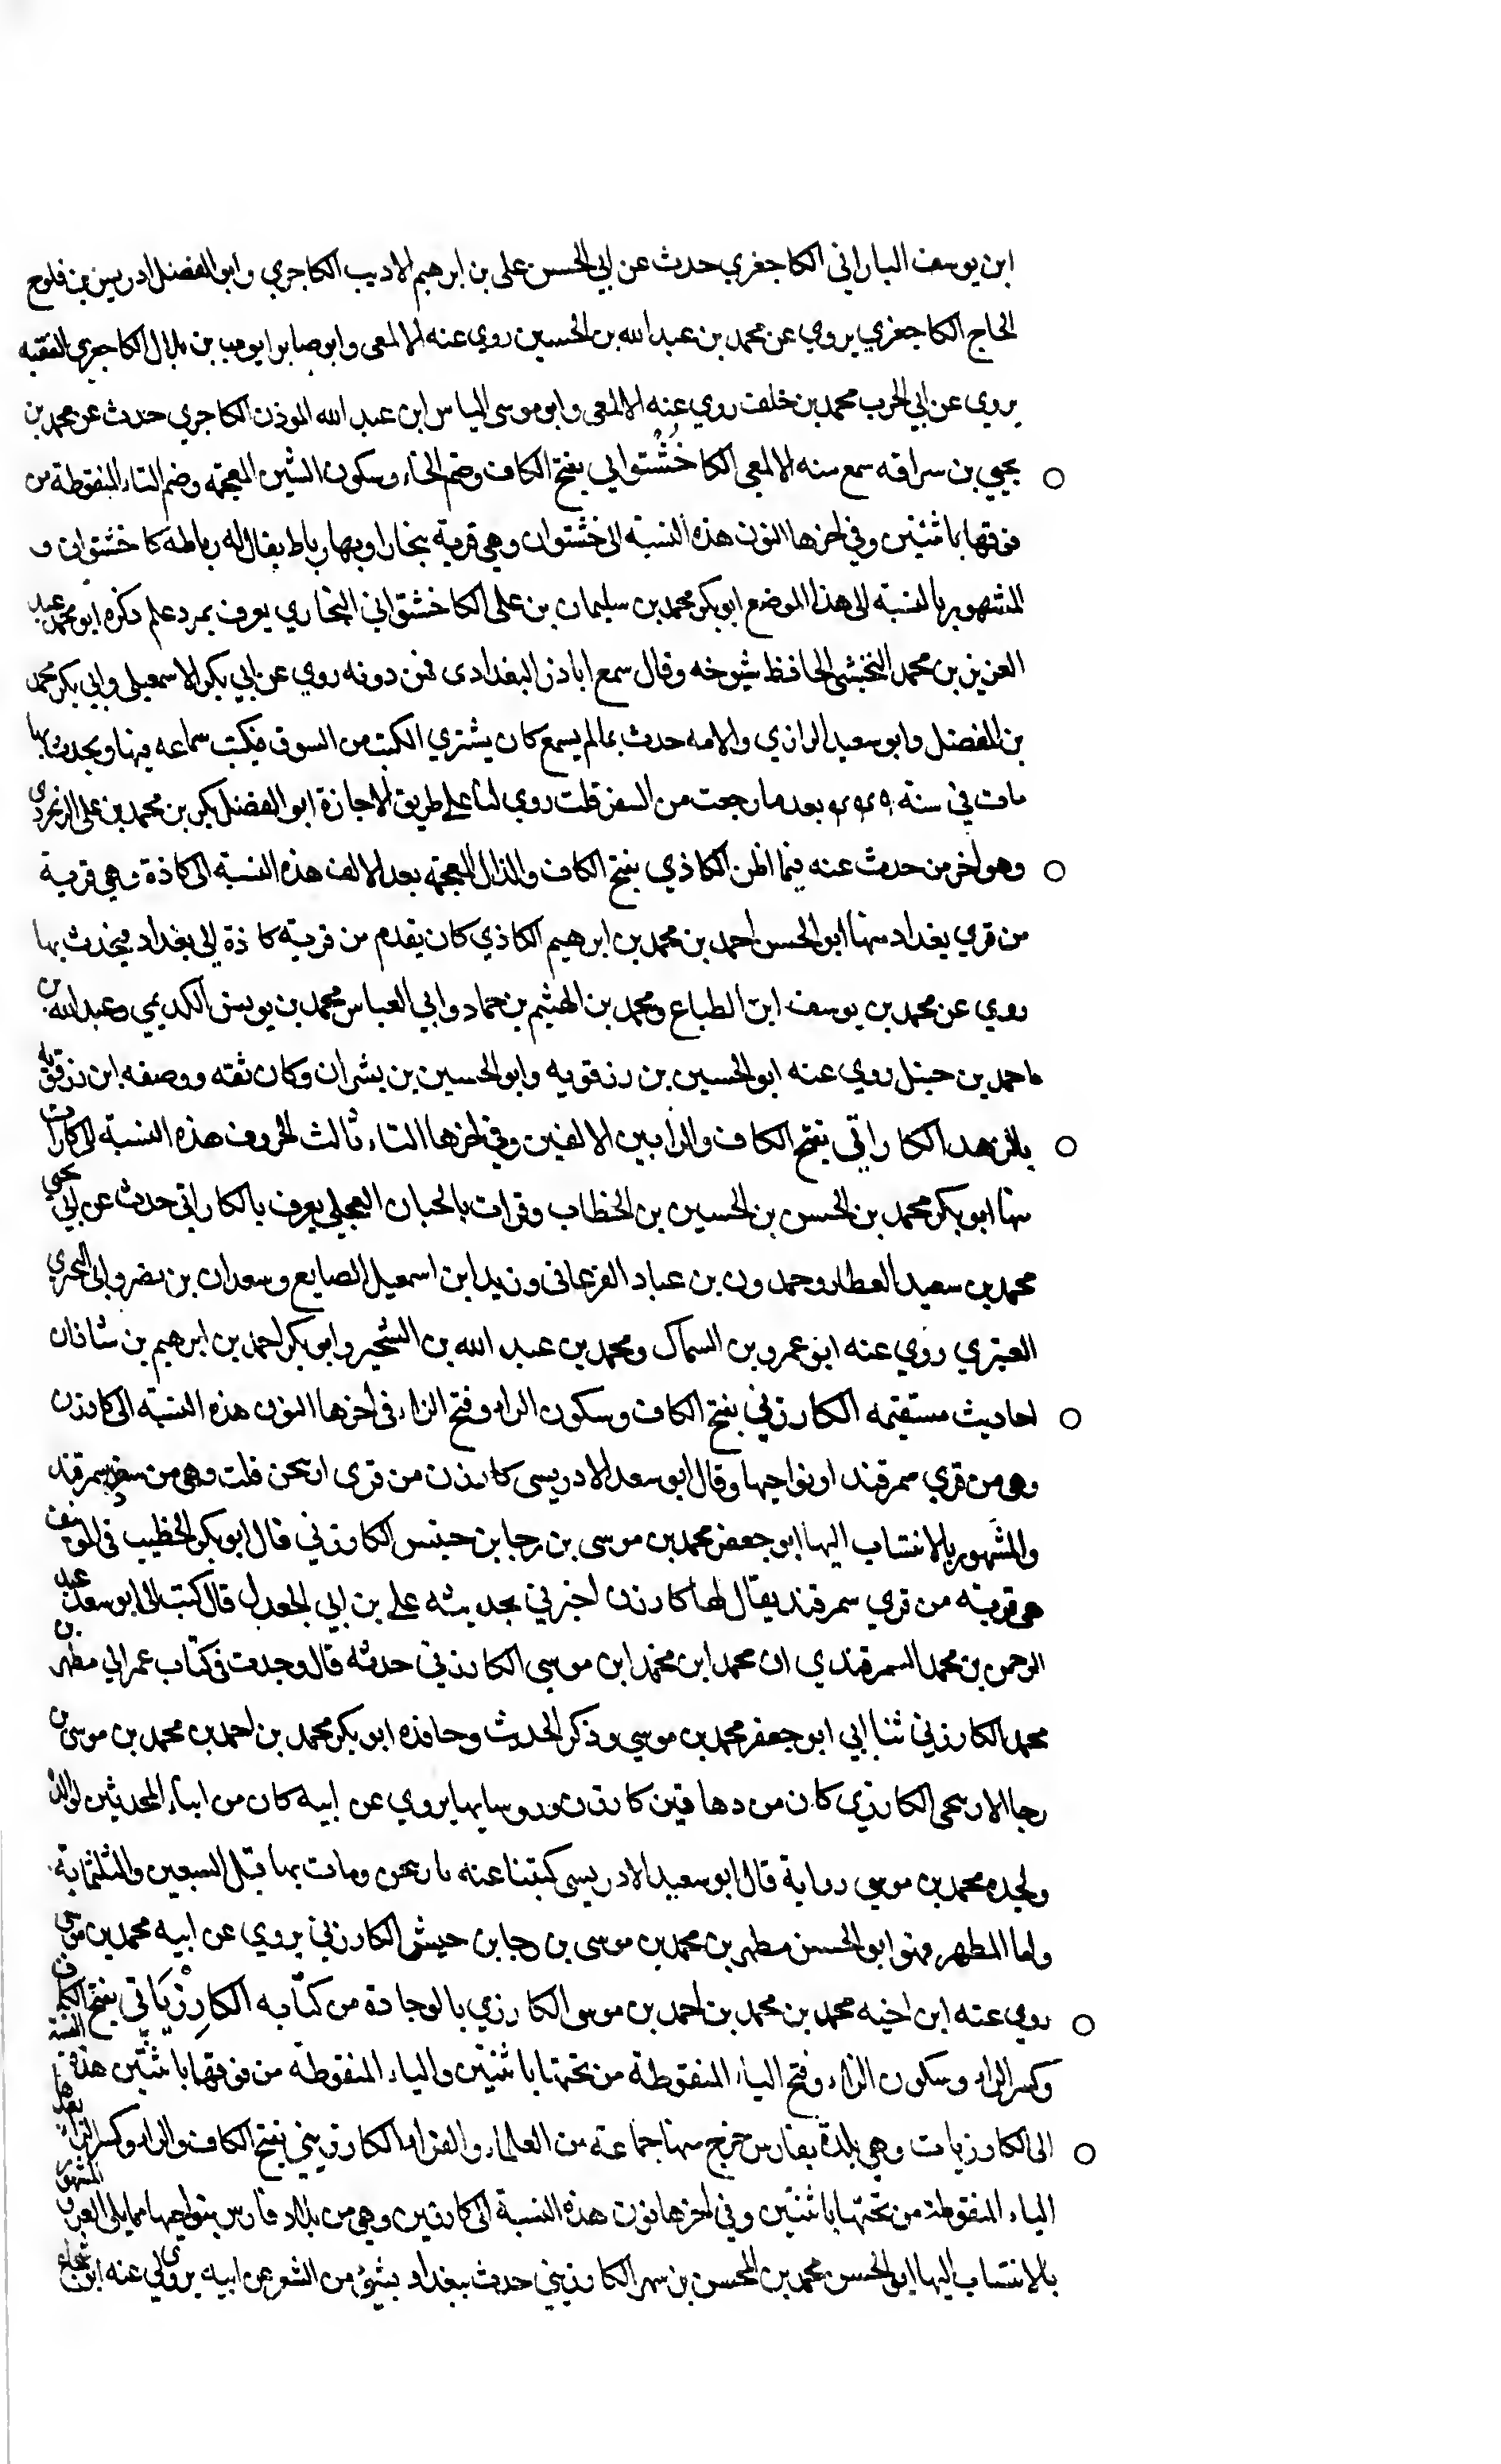 ابن يوسف الباراني الكاجغري حدث عن ابي الحسن علي بن ابرهيم الاديب الكاجري وابو الفضل ادريس بن
الحاج الكاجغري يروي عن محمد بن عبد الله بن الحسين روي عنه الالمعي وابو صابر ايوب بن بلال الكاجري الفقيه
يروي عن ابي الحرب محمد بن خلف روي عنه الالمعي وابو موسى الياس ابن عبد الله الموذن الكاجري حدث عن محمد بن
يحيي بن سراقه سمع منه الالمعي الكاخُشْتُواني بفتح الكاف وضم الخاء وسكون الشين المعجمه وضم التاء المنقوطة من
فوقها باثنتين وفي اخرها النون هذه النسبة الى خشتوان وهي قرية ببخارا وبها رباط يقال له رباطه كاخشتوان و
المشهور بالنسبة الى هذا الموضع ابو بكر محمد بن سليمان بن علي الكاخشتواني البخاري يعرف بمرد علم ذكره ابو محمد عبد
العزيز بن محمد النخشبي الحافظ شيوخه وقال سمع اباذر البغدادى فمن دونه روي عن ابي بكر الاسمعيلي وابي بكر محمد
بن الفضل وابو سعيد الرازي والامه حدث بما لم يسمع كان يشتري الكتب من السوق فيكتب سماعه فيها ويحدث بها
مات في سنة بعد ما رجعت من السفر قلت روي لنا علي طريق الاجازة ابو الفضل بكر بن محمد بن علي الزنجري
وهو اخر من حدث عنه فيما اظن الكاذي بفتح الكاف والذال المعجمه بعد الالف هذه النسبة الى كاذة وهي قرية
من قري بغداد منها ابو الحسن احمد بن محمد بن ابرهيم الكاذي كان يقدم من قرية كاذة الي بغداد فيحدث بها
روي عن محمد بن يوسف ابن الطباع ومحمد بن الهيثم بن حماد وابي العباس محمد بن يونس الكديمي وعبد الله بن
احمد بن حنبل روي عنه ابو الحسين بن رزقويه وابو الحسين بن بشران وكان ثقه ووصفه ابن رزقويه
بالزهد الكاراتي بفتح الكاف والراء بين الالفين وفي اخرها التاء ثالث الحروف هذه النسبة الى كارات
منها ابو بكر محمد بن الحسن بن الحسين بن الخطاب وفرات بالحبان العجلي يعرف بالكاراتي حدث عن ابي يحيي
محمد بن سعيد العطار وحمدون بن عباد الفرغاني وزيد ابن اسمعيل الصايغ وسعدان بن نصر وابي البحري
العنبري روي عنه ابو عمرو بن السماك ومحمد بن عبد الله بن الشخير وابو بكر احمد بن ابرهيم بن شاذان
احاديث مستقيمه الكارزني بفتح الكاف وسكون الراء وفتح الزاء في اخرها النون هذه النسبة الى كارزن
وهي من قري سمرقند او نواحيها وقال ابو سعد الادريسي كارزن من قرى اربخن قلت وهي من سغد سمرقند
والمشهور بالانتساب اليها ابو جعفر محمد بن موسى بن رجا بن حنبس الكارزني قال ابو بكر الخطيب في المؤتنف
هي قرية من قري سمرقند يقال لها كارزن اخبرني بحديثه علي بن ابي الجعدل قال كتب الى ابو سعد عبد
الرحمن بن محمد السمرقندي ان محمد ابن محمد ابن موسي الكارزني حدثه قال وجدت في كتاب عمر ابي مطهر بن
محمد الكارزني ثنا ابي ابو جعفر محمد بن موسي وذكر الحديث وحافده ابو بكر محمد بن احمد بن محمد بن موسى بن
رجا الاربخني الكارزي كان من دهاقين كارزن وروسايها يروي عن ابيه كان من ابناء المحدثين لوالده
ولجده محمد بن موسى رواية قال ابو سعيد الادريسي كتبنا عنه باربخن ومات بها قبل السبعين والثلثماية
واما المطهر فهو ابو الحسن مطهر بن محمد بن موسى بن رجا بن حيش الكارزني يروي عن ابيه محمد بن موسي
روي عنه ابن اخيه محمد بن محمد بن احمد بن موسى الكارزي بالوجادة من كتابه الكارِزْيَاتي بفتح الكاف
وكسر الراء وسكون الزاء وفتح الياء المنقوطة من تحتها باثنتين والياء المنقوطة من فوقها باثنتين هذه النسبة
الى الكارزيات وهي بلدة بفارس خرج منها جماعة من العلماء والقراء الكارزيني بفتح الكاف والراء وكسر الزاء بعدها
الياء المنقوطة من تحتها باثنتين وفي اخرها نون هذه النسبة الى كارزين وهي من بلاد فارس بنواحيها مما يلي البحر والمشهور
بالانتساب اليها ابو الحسن محمد بن المحسن بن سهر الكارزيني حدث ببغداد بشيئ من الشعر عن ابيه يروي لي عنه ابن شجاع